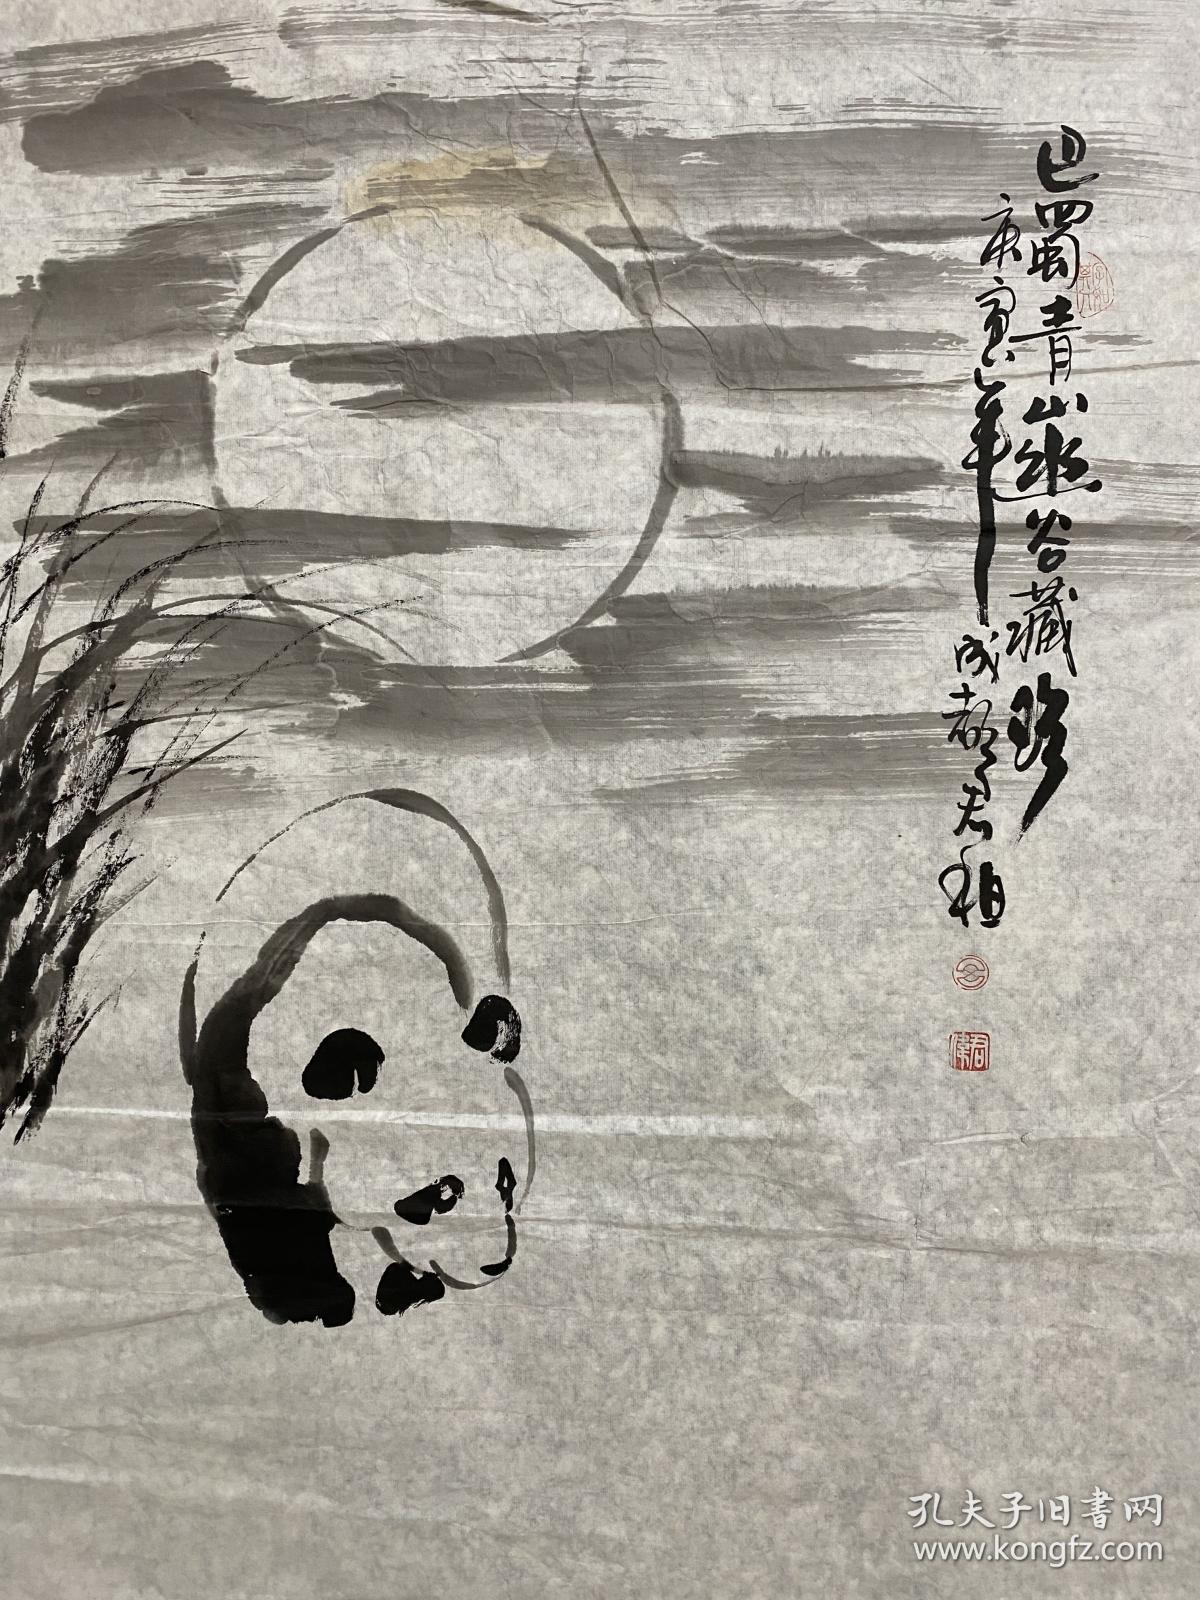 巴蜀青山幽谷藏珍
庚寅年成都君祖
孔夫子旧书网
www.kongfz.com